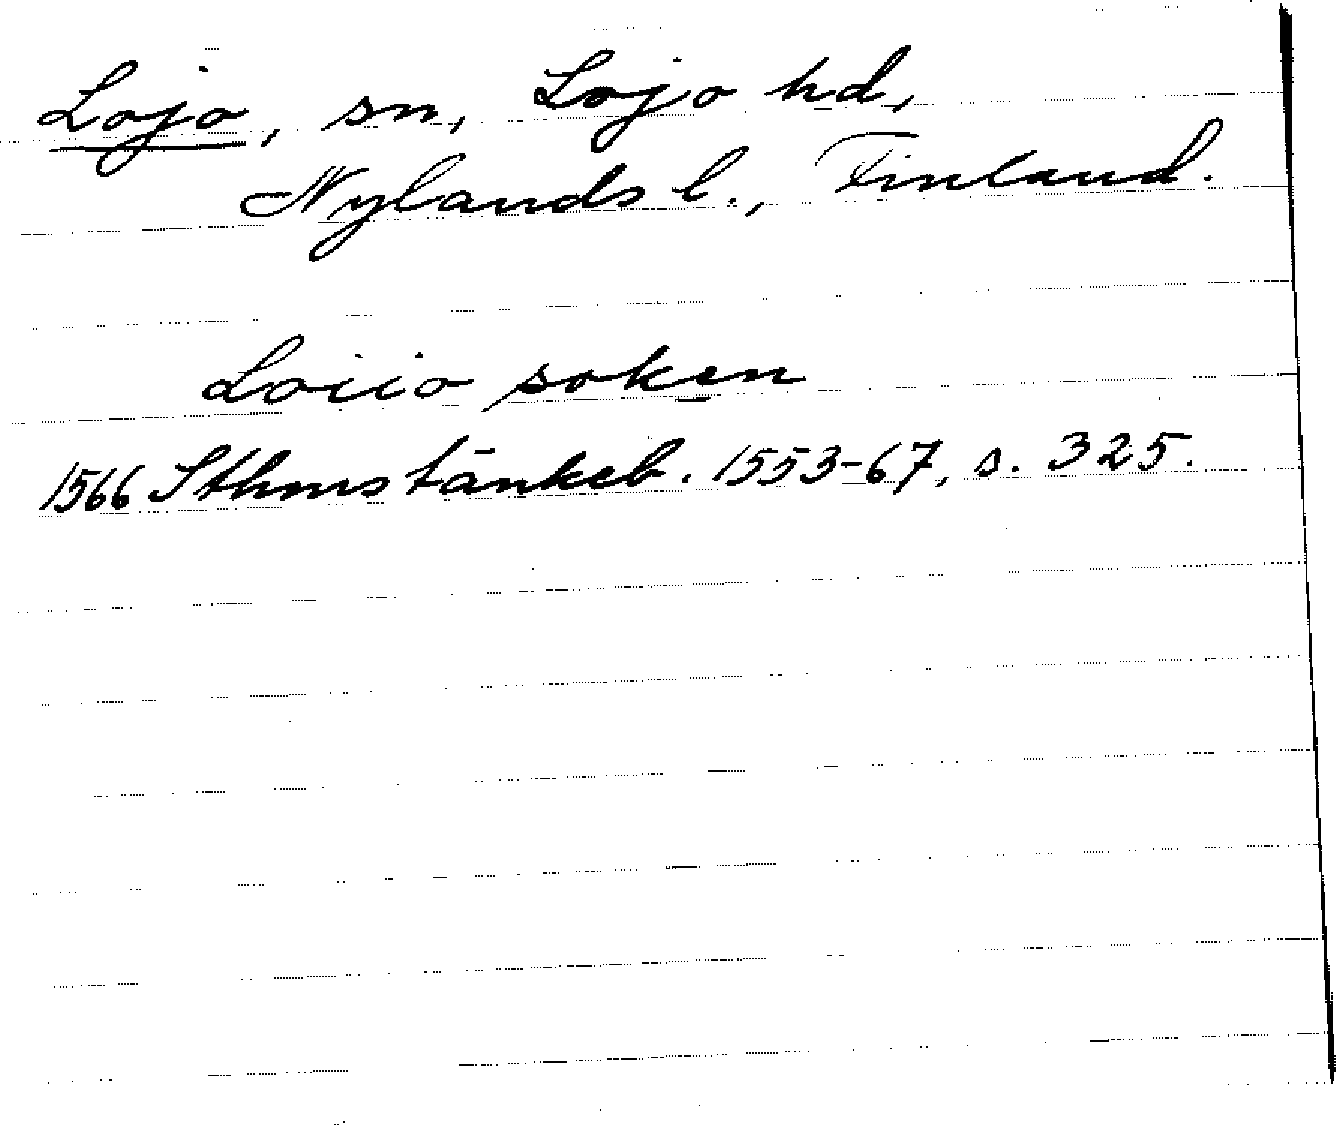 Lojo, sn, Lojo hd,
Nylands l., Finland.
Loiio soken
1566 Sthms tänkeb. 1553-67, s. 325.